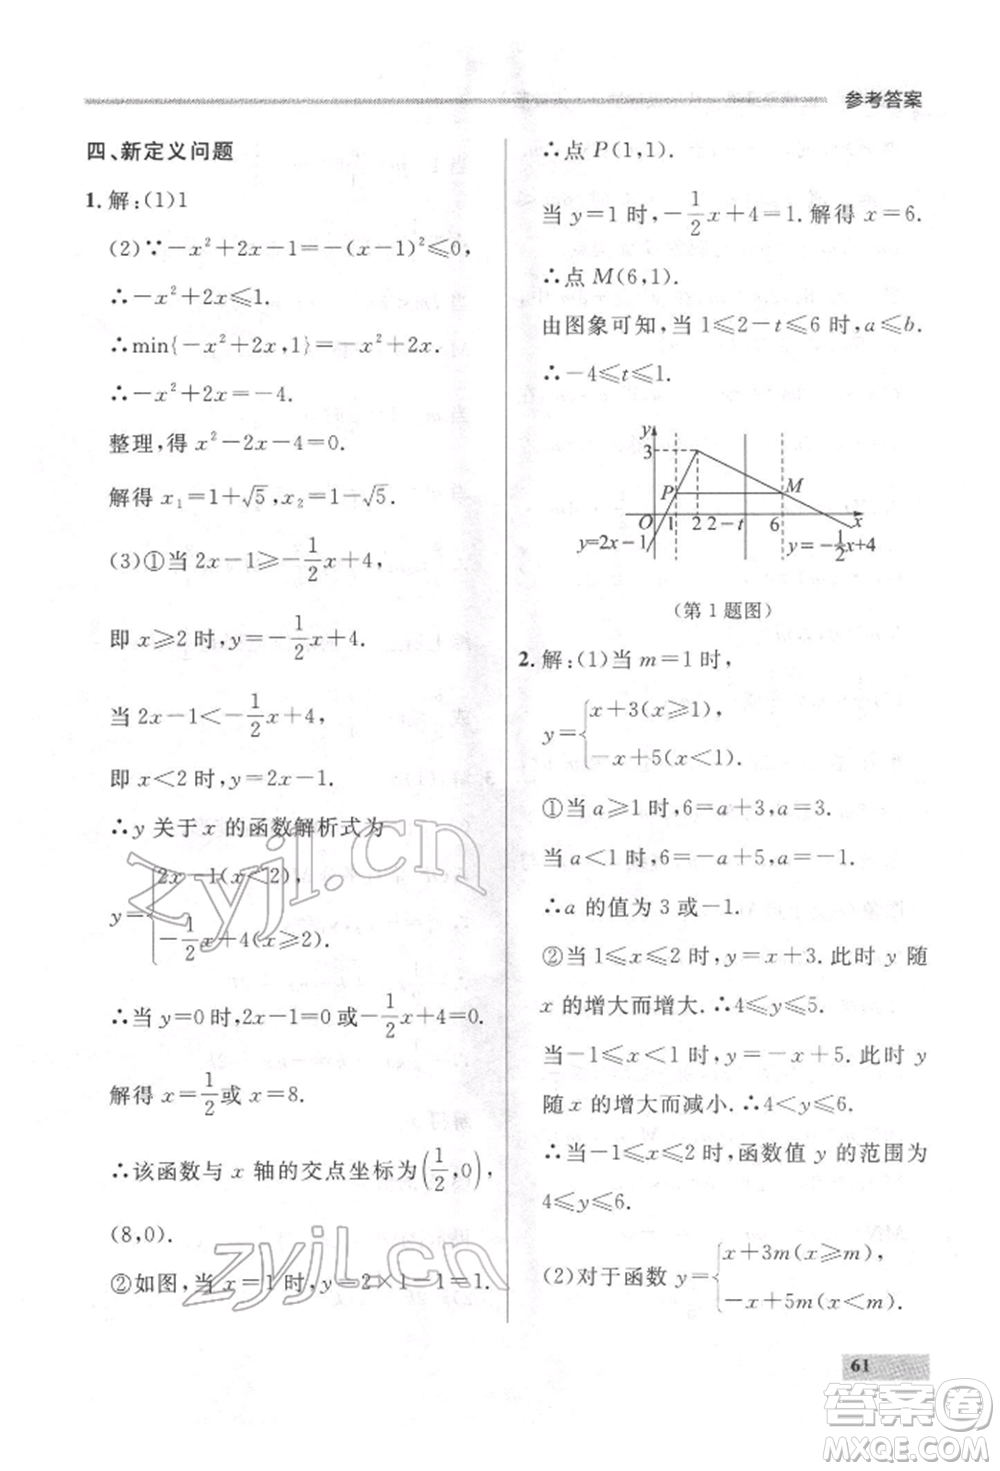 参考答案
四、新定义问题
1. 解:(1)1
(2)∵-x²+2x-1=-(x-1)²≤0,
∴-x²+2x≤1.
∴min{-x²+2x,1}=-x²+2x.
∴-x²+2x=-4.
整理,得 x²-2x-4=0.
解得 x₁=1+√5,x₂=1-√5.
(3)①当 2x-1≥-1/2x+4,
即 x≥2 时,y=-1/2x+4.
当 2x-1<-1/2x+4,
即 x<2 时,y=2x-1.
∴y 关于 x 的函数解析式为
y={2x-1(x<2),
-1/2x+4(x≥2).
∴当 y=0 时,2x-1=0 或-1/2x+4=0.
解得 x=1/2或 x=8.
∴该函数与 x 轴的交点坐标为(1/2,0),
(8,0).
②如图,当 x=1 时,y=2×1-1=1.
∴点 P(1,1).
当 y=1 时,-1/2x+4=1.解得 x=6.
∴点 M(6,1).
由图象可知,当 1≤2-t≤6 时,a≤b.
∴-4≤t≤1.
y
3
P
M
O 1 2 2-t 6 x
y=2x-1
y=-1/2x+4
(第 1 题图)
2. 解:(1)当 m=1 时,
y={x+3(x≥1),
-x+5(x<1).
①当 a≥1 时,6=a+3,a=3.
当 a<1 时,6=-a+5,a=-1.
∴a 的值为 3 或-1.
②当 1≤x≤2 时,y=x+3.此时 y 随
x 的增大而增大.∴4≤y≤5.
当-1≤x<1 时,y=-x+5.此时 y
随 x 的增大而减小.∴4<y≤6.
∴当-1≤x≤2 时,函数值 y 的范围为
4≤y≤6.
(2)对于函数 y={x+3m(x≥m),
-x+5m(x<m).
61
zyjl.cn
zyjl.cn
答案圈
MXQE.COM